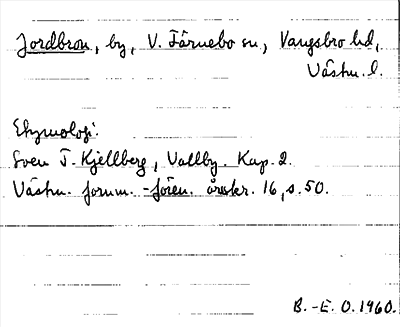 Jordbron, by, V. Färnebo sn, Vangsbro hd,
Västm. l.
Etymologi:
Sven T. Kjellberg, Vallby. Kap. 2.
Västm. fornm.-fören. årsskr. 16, s. 50.
B.-E. O. 1960.